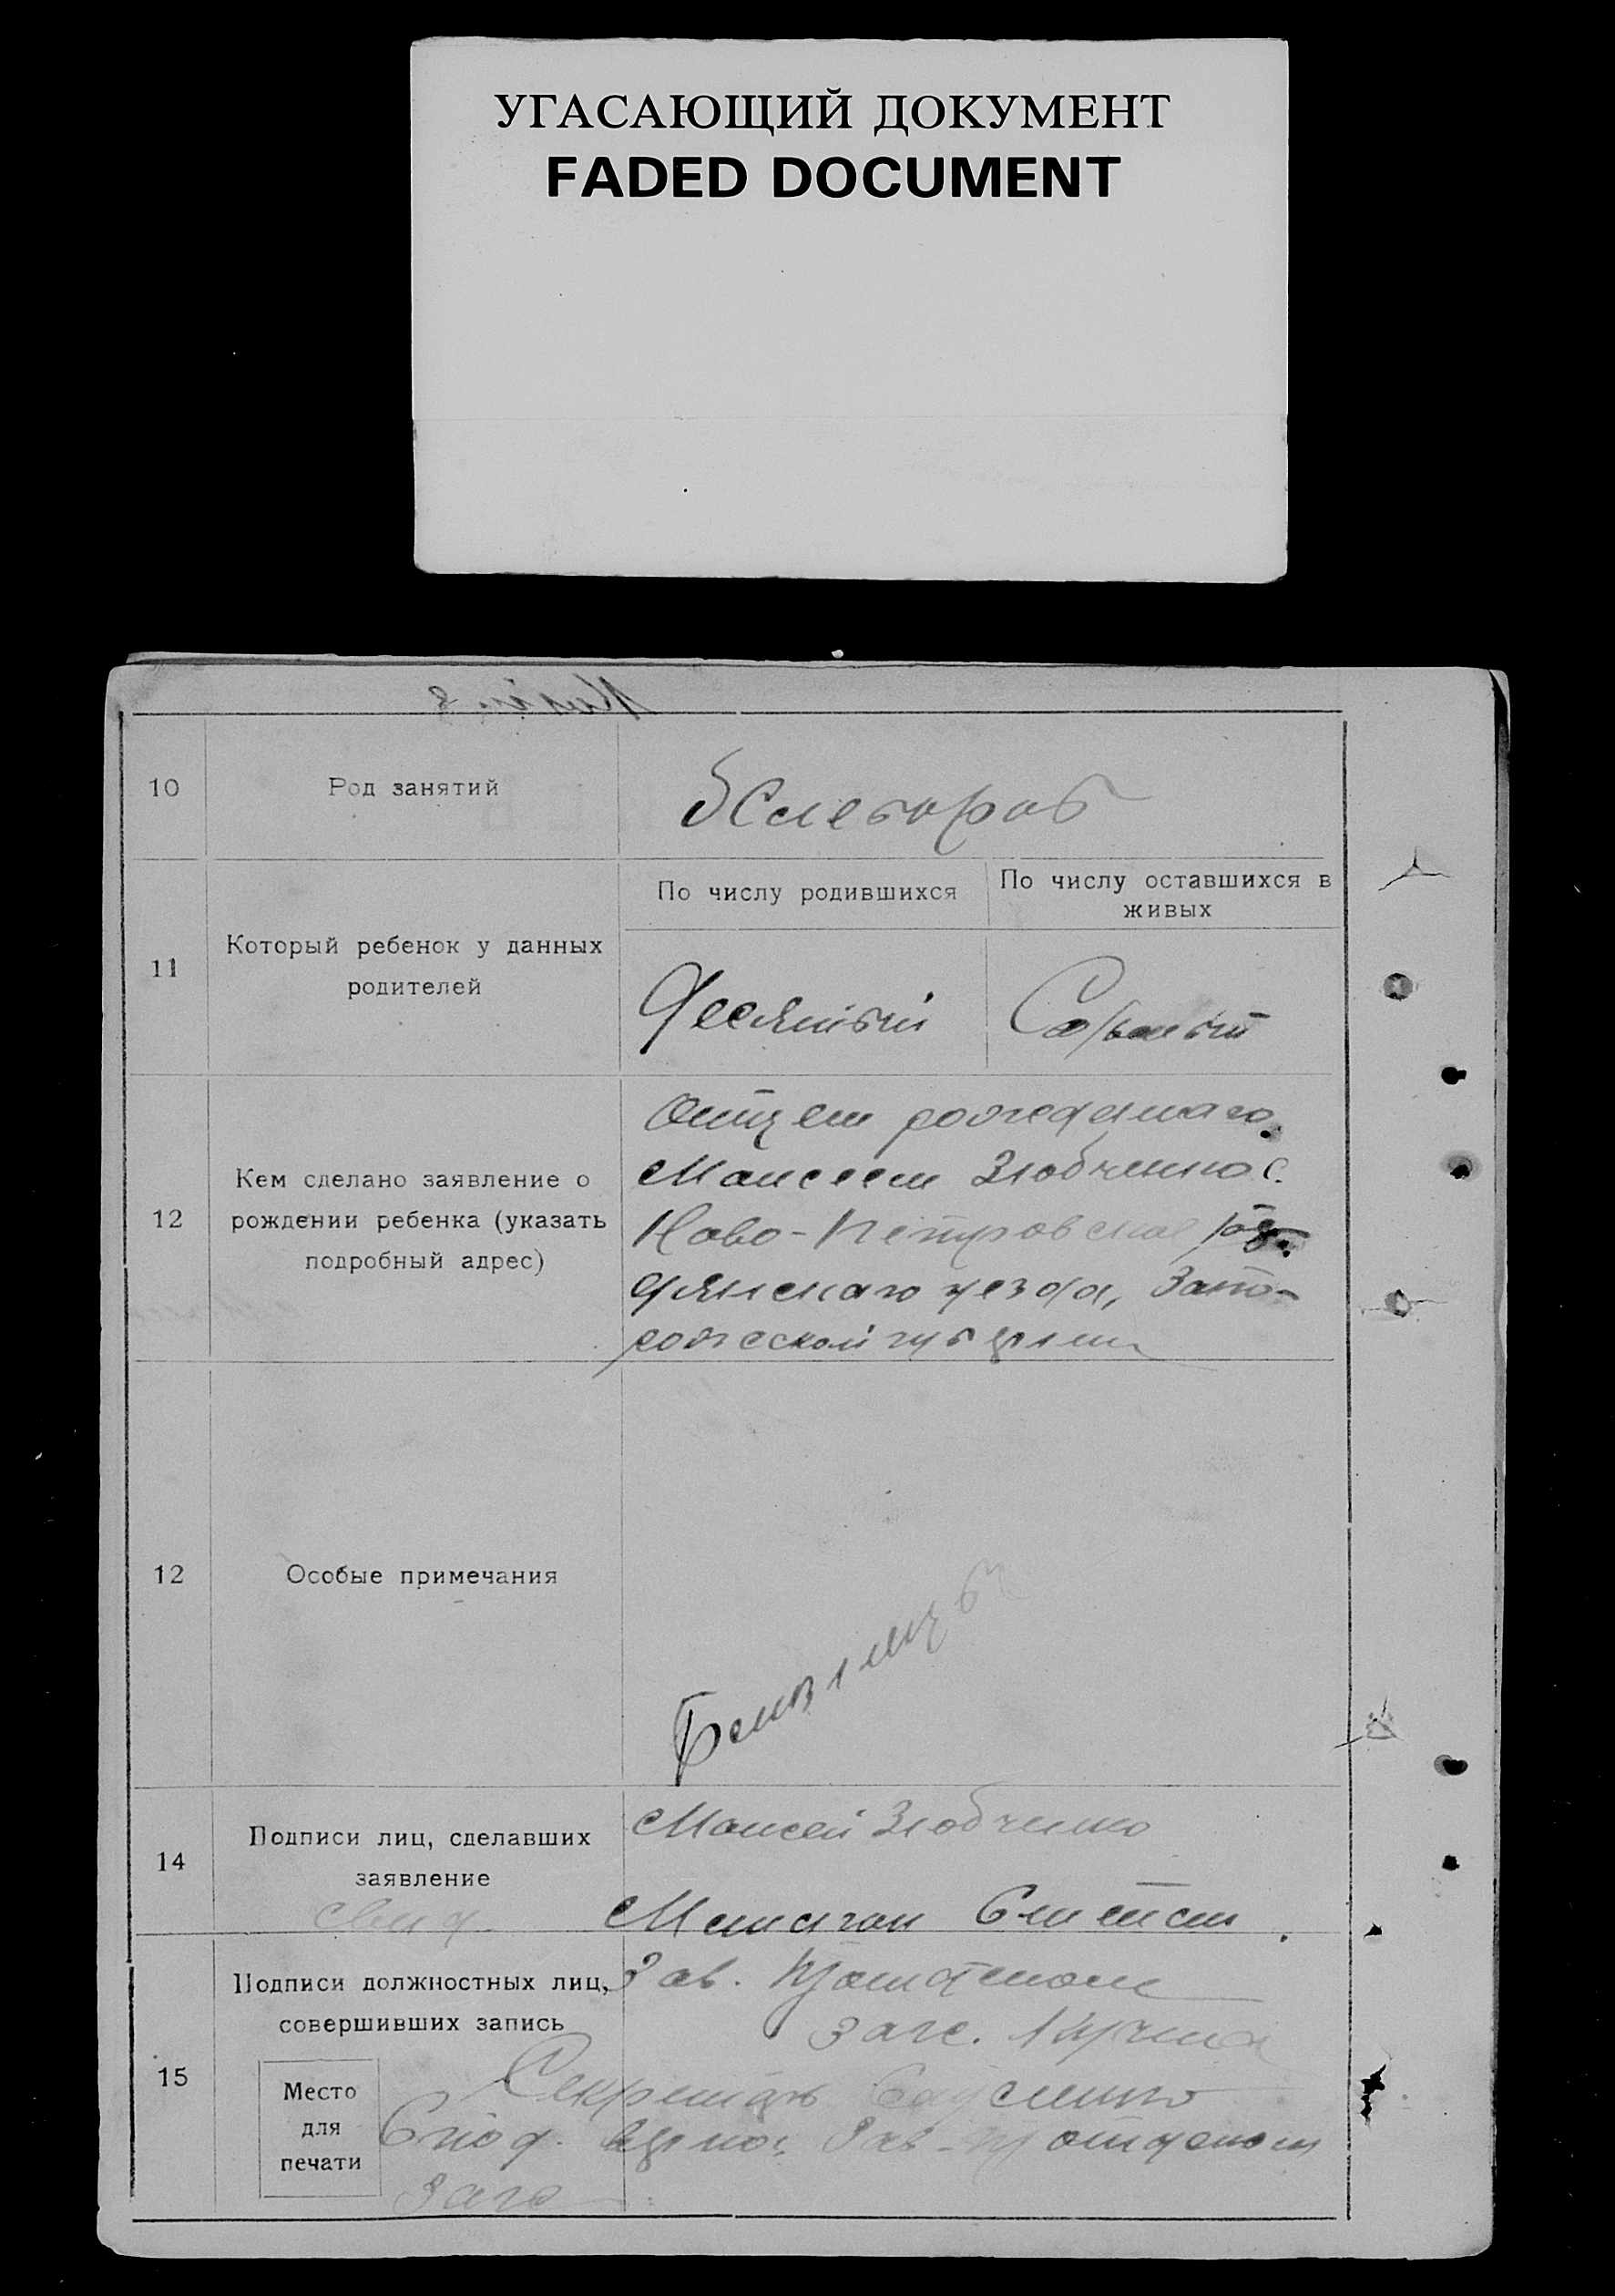 УГАСАЮЩИЙ ДОКУМЕНТ
FADED DOCUMENT
10
Род занятий
Хлебороб
11
Который ребенок у данных
родителей
По числу родившихся
По числу оставшихся в
живых
Десятый
12
Кем сделано заявление о
рождении ребенка (указать
подробный адрес)
Отцем рожеданаго
Моисеем Злобченко с.
Ново-Петровское
дянскаго уезда, Запо-
рожеской губернии
12
Особые примечания
14
Подписи лиц, сделавших
заявление
Моисей Злобченко
свид.
15
Подписи должностных лиц,
совершивших запись
Место
для
печати
Зав. п/отделом
загс.
Секретарь
С под. верно: Зав. п/отделом
Загс